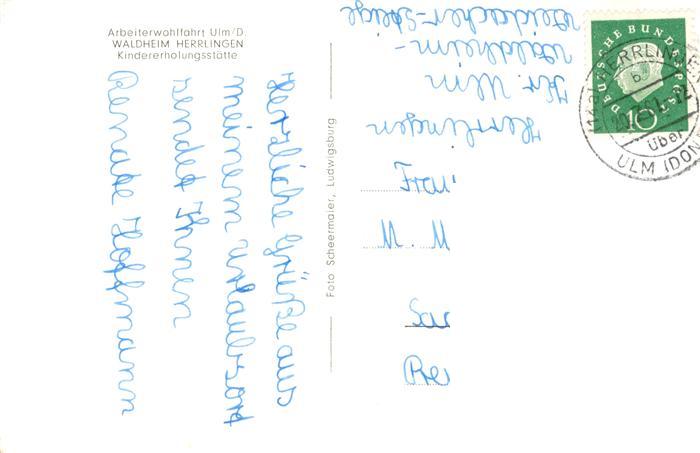 Arbeiterwohlfahrt Ulm/D.
WALDHEIM HERRLINGEN
Kindererholungsstätte
Herzliche Grüße aus
meinem Urlaubsort
sendet Ihnen
Hoffmann
Foto Scheermaier, Ludwigsburg
Herrlingen
Kr. Ulm
Waldheim-
DEUTSCHE BUNDESPOST
10
HERRLINGEN
über
ULM (DON
Frau
M. M
Sar